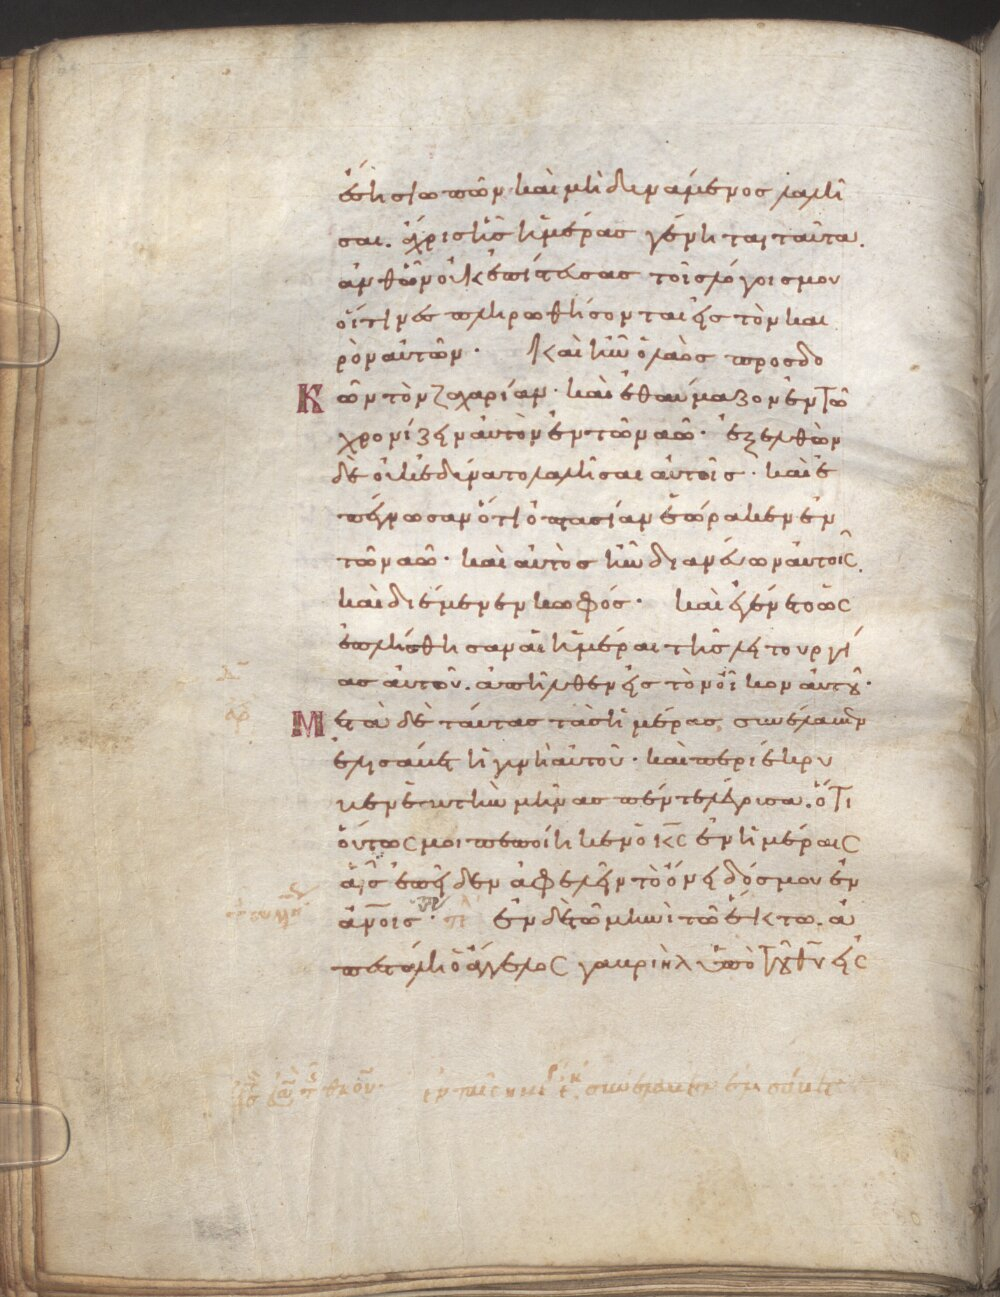 ἔση σιωπῶν καὶ μὴ δυνάμενος λαλῆ
σαι. ἄχρι ἧς ἡμέρας γένηται ταῦτα.
ἀνθῶν οὐκ ἐπίστευσας τοῖς λόγοις μου
οἵτινες πληρωθήσονται εἰς τὸν και
ρὸν αυτῶν· Καὶ ἦν ὁ λαὸς προσδο
κῶν τὸν ζαχαρίαν· καὶ ἐθαύμαζον ἐν τῶ
χρονίζειν αὐτὸν ἐν τῶ ναῶ· ἐξελθὼν
δὲ οὐκ ἐδύνατο λαλῆσαι αὐτοῖς· καὶ ἐ
πέγνωσαν ὅτι ὀπτασίαν ἑώρακεν ἐν
τῶ ναῶ· καὶ αὐτὸς ἦν διανεύων αὐτοῖς.
καὶ διέμενεν κωφός· καὶ ἐγένετο ὡς
ἐπλήσθησαν αἱ ἡμέραι τῆς λειτουργί
ας αὐτοῦ. ἀπῆλθεν εἰς τὸν οἶκον αὐτοῦ·
Μετὰ δὲ ταύτας τὰς ἡμέρας, συνέλαβεν
ἐλισάβετ ἡ γυνὴ αὐτοῦ· καὶ περιέκρυ
βεν ἑαυτὴν μῆνας πέντε λέγουσα. ὅτι
οὕτως μοι πεποίηκεν ὁ κς ἐν ἡμέραις
αἷς ἐπεῖδεν ἀφελεῖν τὸ ὄνειδός μου ἐν
ἀνοις· ἐν δὲ τῶ μηνὶ τῶ ἕκτω. ἀ
πεστάλη ὁ ἄγγελος γαβριὴλ ὑπὸ τοῦ θυ εἰς